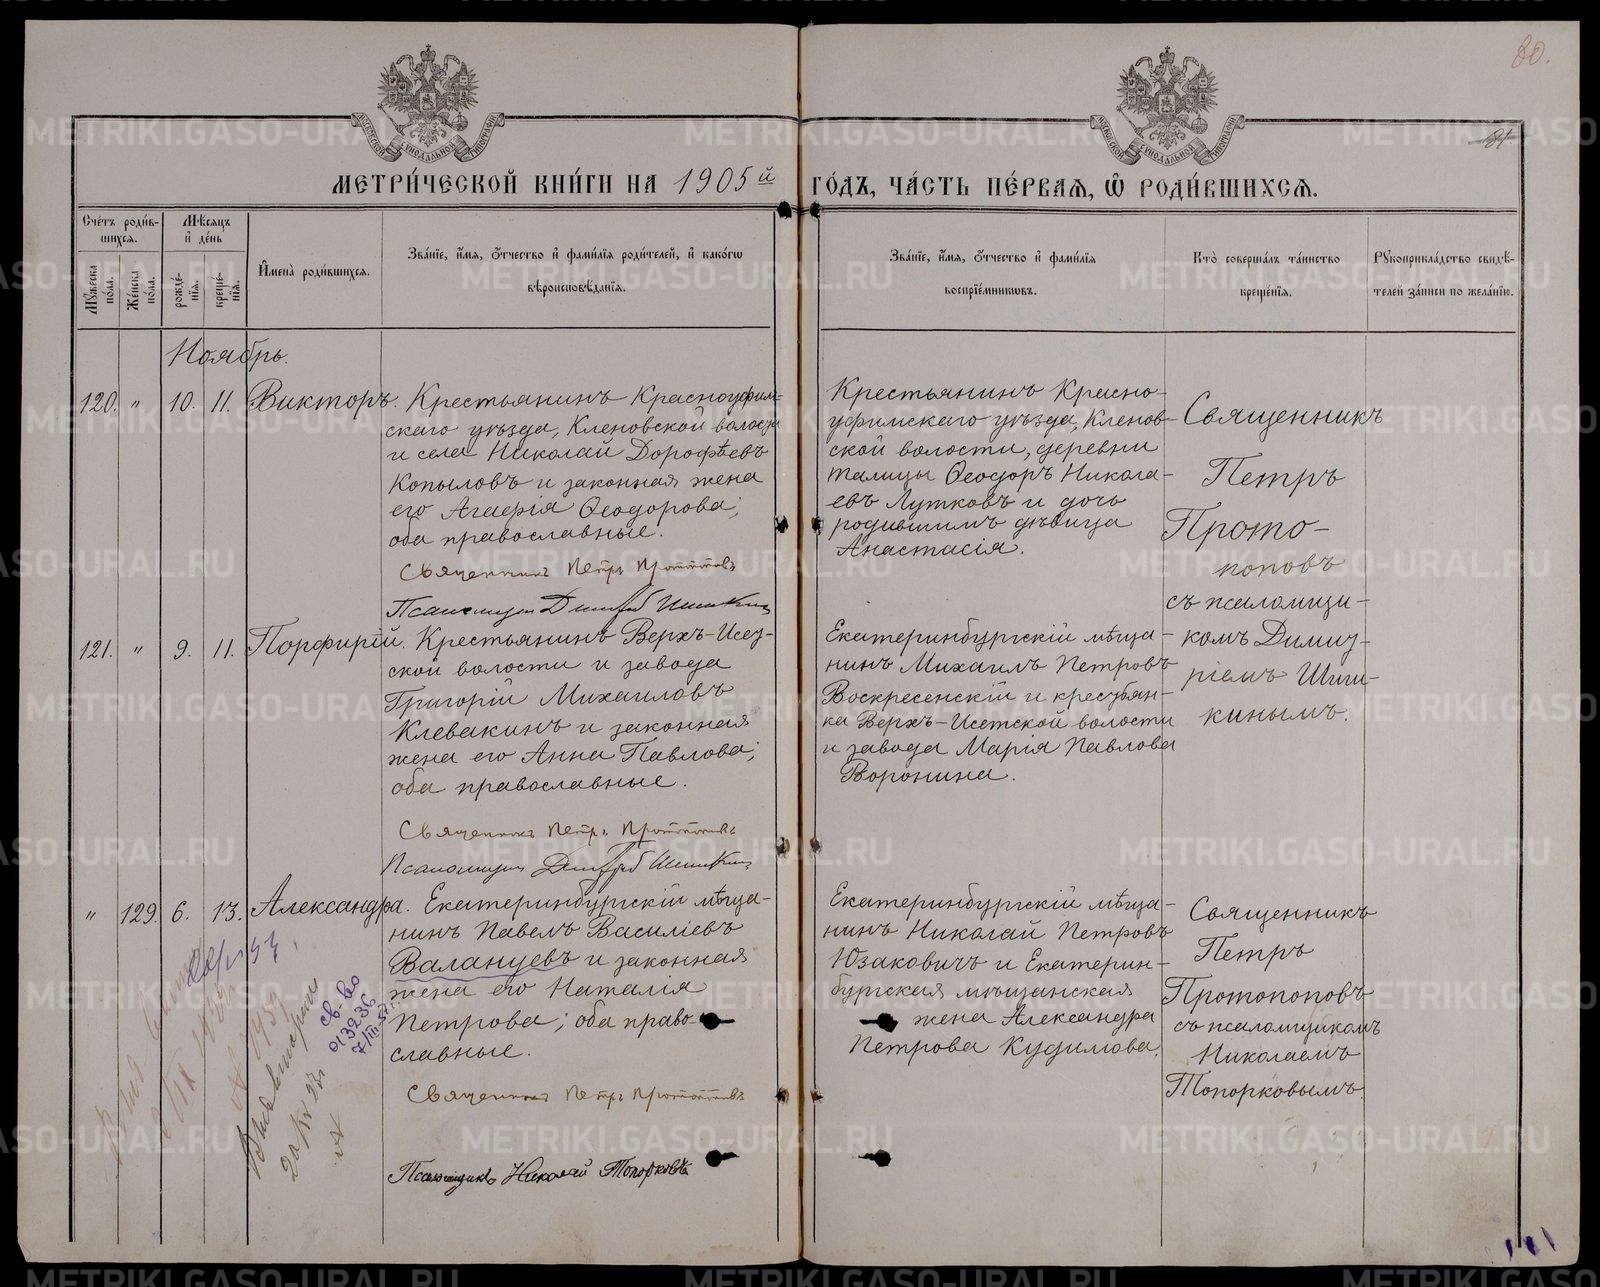 80.
81
МЕТРИ́ЧЕСКОЙ КНИ́ГИ НА 1905й ГО́ДЪ, ЧА́СТЬ ПЕ́РВАЯ, Ѽ РОДИ́ВШИХСЯ.
Сче́тъ роди́вшихся.
Мꙋ́жеска по́ла.
Же́нска по́ла.
Мѣ́сяцъ и де́нь
рожде́нїя.
креще́нїя.
И҆мена̀ роди́вшихся.
Зва́нїе, и҆́мя, ѻ҆́тчество и҆ фами́лїя роди́телей, и҆ како́гѡ
вѣроисповѣ́данїя.
Зва́нїе, и҆́мя, ѻ҆́тчество и҆ фами́лїя
воспрїе́мникѡвъ.
Кто̀ соверша́лъ та́инство
креще́нїя.
Рꙋкоприкла́дство свидѣ́-
телей за́писи по жела́нїю.
Ноябрь.
120. " 10. 11. Викторъ.
Крестьянинъ Красноуфим-
скаго уѣзда, Кленовской волости
и села Николай Дорофѣевъ
Копыловъ и законная жена
его Агаѳія Ѳеодорова;
оба православные.
Священникъ Петръ Протопоповъ
Псаломщикъ Димитрій Шишкинъ
Крестьянинъ Красно-
уфимскаго уѣзда, Кленов-
ской волости, деревни
Талицы Ѳеодоръ Никола-
евъ Лутковъ и дочь
родившимъ дѣвица
Анастасія.
Священникъ
Петръ
Прото-
поповъ
съ псаломщи-
комъ Димит-
ріемъ Шиш-
кинымъ.
121. " 9. 11. Порфирій.
Крестьянинъ Верхъ-Исет-
ской волости и завода
Григорій Михаиловъ
Клевакинъ и законная
жена его Анна Павлова;
оба православные.
Священникъ Петръ Протопоповъ
Псаломщикъ Димитрій Шишкинъ
Екатеринбургскій мѣща-
нинъ Михаилъ Петровъ
Воскресенскій и крестьян-
ка Верхъ-Исетской волости
и завода Марія Павлова
Воронина.
" 129. 6. 13. Александра.
Екатеринбургскій мѣща-
нинъ Павелъ Василіевъ
Валанцевъ и законная
жена его Наталія
Петрова; оба право-
славные.
Священникъ Петръ Протопоповъ
Псаломщикъ Николай Топорковъ
Екатеринбургскій мѣща-
нинъ Николай Петровъ
Юзаковичъ и Екатерин-
бургская мѣщанская
жена Александра
Петрова Кудимова.
Священникъ
Петръ
Протопоповъ
съ псаломщикомъ
Николаемъ
Топорковымъ.
св-во
013236
7/III-57.
METRIKI.GASO-URAL.RU